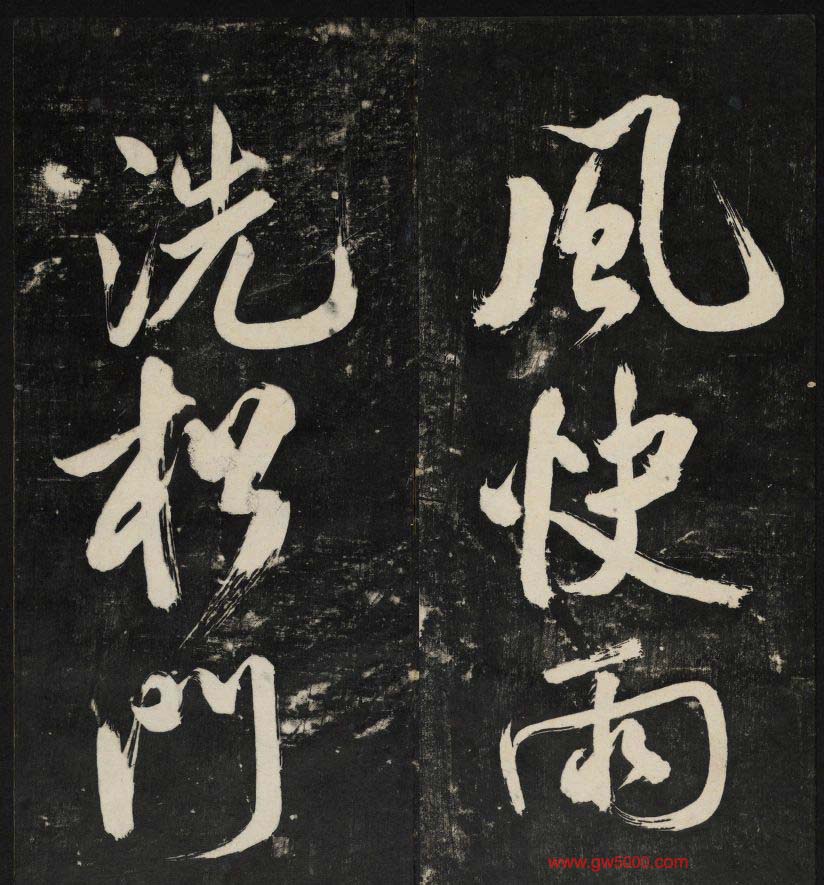 風快雨
洗門
www.gw5000.com